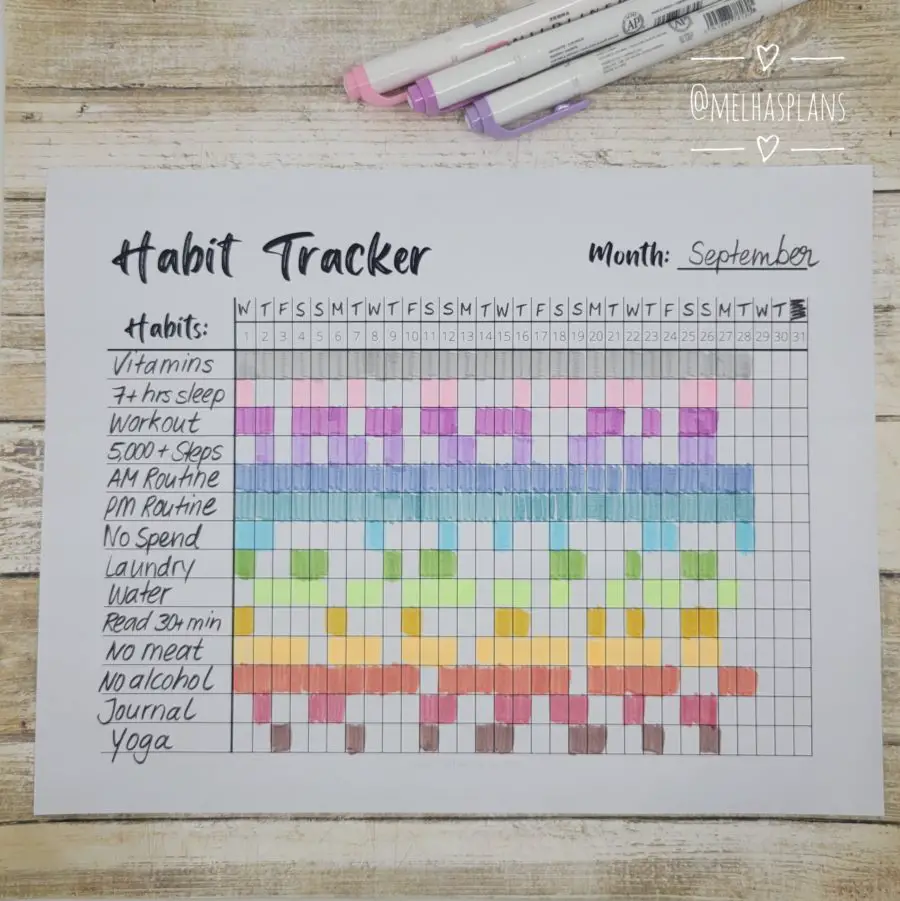 ZEBRA
AP
@MELHASPLANS
Habit Tracker
Month: September
W T F S S M T W T F S S M T W T F S S M T W T F S S M T W T
Habits: 1 2 3 4 5 6 7 8 9 10 11 12 13 14 15 16 17 18 19 20 21 22 23 24 25 26 27 28 29 30 31
Vitamins
7+ hrs sleep
Workout
5,000+ Steps
AM Routine
PM Routine
No Spend
Laundry
Water
Read 30+ min
No meat
No alcohol
Journal
Yoga